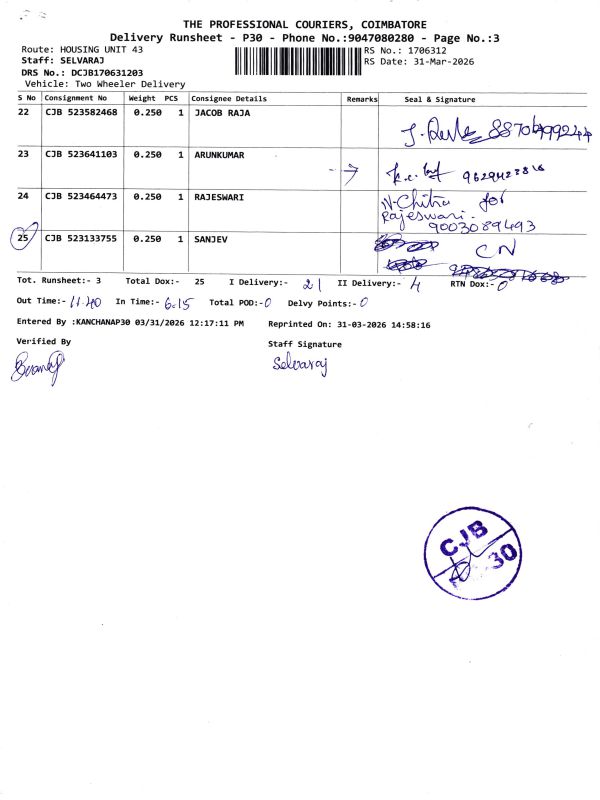 THE PROFESSIONAL COURIERS, COIMBATORE
Delivery Runsheet - P30 - Phone No.:9047080280 - Page No.:3
Route: HOUSING UNIT 43
RS No.: 1706312
Staff: SELVARAJ
RS Date: 31-Mar-2026
DRS No.: DCJB170631203
Vehicle: Two Wheeler Delivery
S No Consignment No Weight PCS Consignee Details Remarks Seal & Signature
22 CJB 523582468 0.250 1 JACOB RAJA
23 CJB 523641103 0.250 1 ARUNKUMAR
24 CJB 523464473 0.250 1 RAJESWARI N-Chitra for
Rajeswari.
9003089493
25 CJB 523133755 0.250 1 SANJEV CN
Tot. Runsheet:- 3 Total Dox:- 25 I Delivery:- 21 II Delivery:- 4 RTN Dox:- 0
Out Time:- 11.40 In Time:- 6.15 Total POD:-0 Delvy Points:- 0
Entered By :KANCHANAP30 03/31/2026 12:17:11 PM Reprinted On: 31-03-2026 14:58:16
Verified By
Staff Signature
Selvaraj
CJB
30